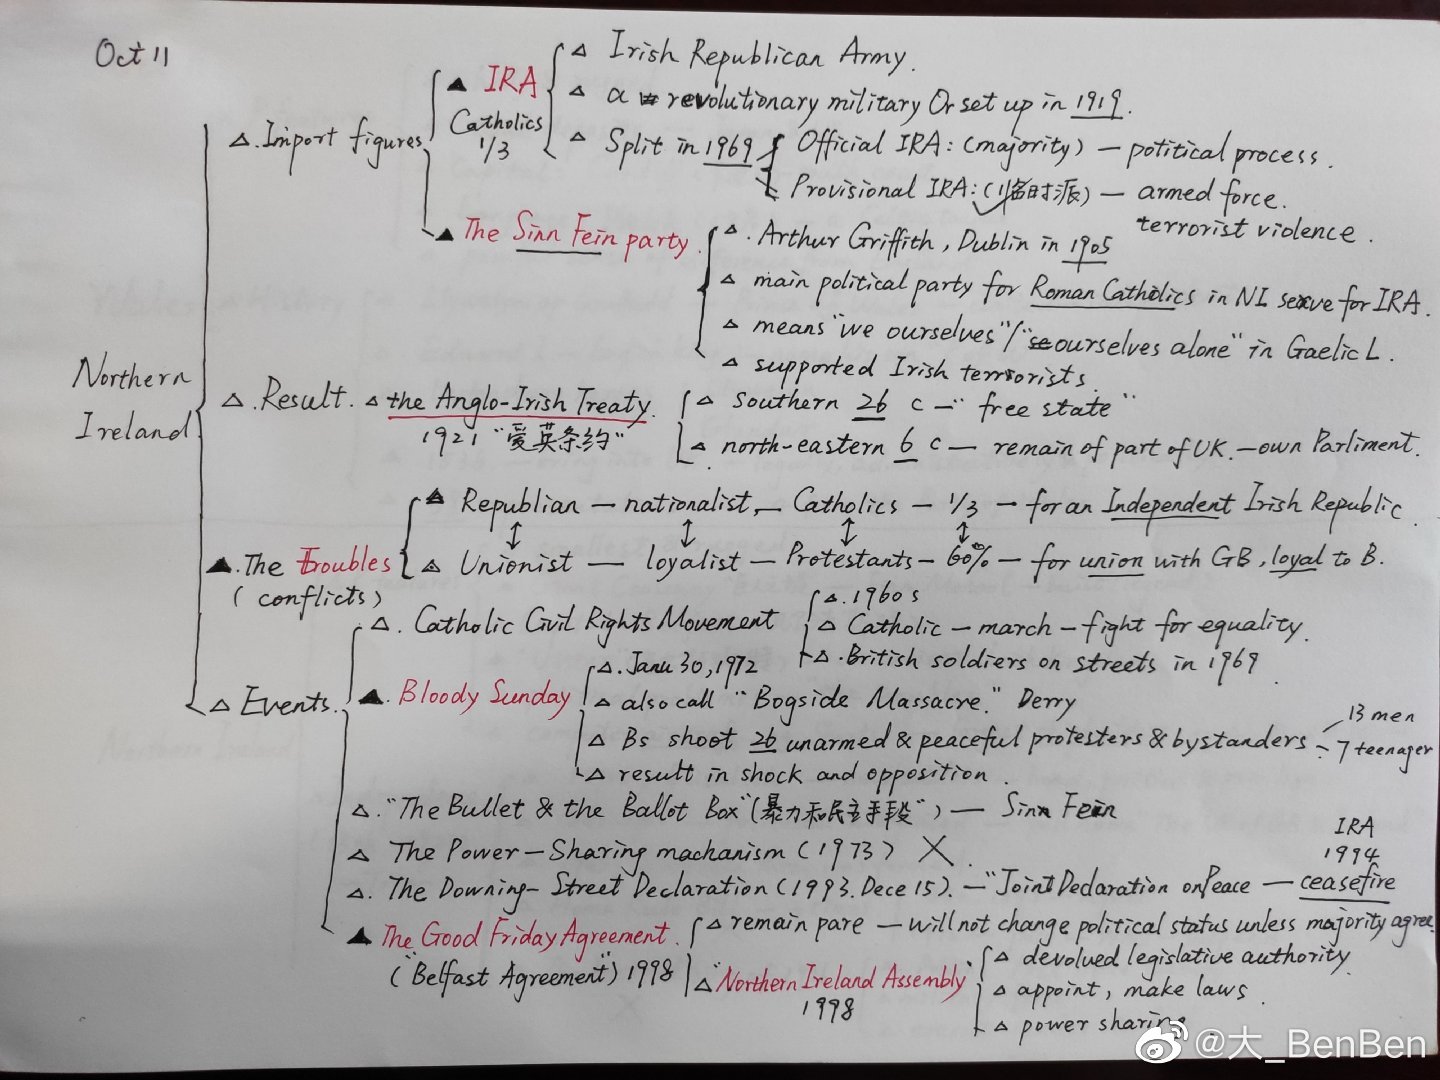 Oct 11
△ Irish Republican Army.
▲ IRA
△ a revolutionary military Or set up in 1919.
Catholics
1/3
△. Import figures
△ Split in 1969
Official IRA: (majority) — potitical process.
Provisional IRA: (临时派) — armed force.
terrorist violence.
▲ The Sinn Fein party
△. Arthur Griffith, Dublin in 1905
△ main political party for Roman Catholics in NI serve for IRA.
△ means "we ourselves"/"ourselves alone" in Gaelic L.
△ supported Irish terrorists.
Northern
Ireland
△. Result. △ the Anglo-Irish Treaty.
1921 "爱英条约"
△ Southern 26 c — "free state"
△ north-eastern 6 c — remain of part of UK. — own Parliment.
▲. The Troubles
(conflicts)
△ Republian — nationalist — Catholics — 1/3 — for an Independent Irish Republic.
△ Unionist — loyalist — Protestants — 60% — for union with GB, loyal to B.
△ Events.
△. Catholic Civil Rights Movement
△. 1960s
△ Catholic — march — fight for equality.
△. British soldiers on streets in 1969
▲. Bloody Sunday
△. Janu 30, 1972
△ also call "Bogside Massacre." Derry
△ Bs shoot 26 unarmed & peaceful protesters & bystanders
13 men
7 teenager
△ result in shock and opposition.
△. "The Bullet & the Ballot Box" (暴力和民主手段") — Sinn Fein
△ The Power-Sharing machanism (1973) ×
△. The Downing-Street Declaration (1993. Dece 15). — "Joint Declaration on Peace — ceasefire
IRA
1994
▲ The Good Friday Agreement.
("Belfast Agreement") 1998
△ remain pare — will not change political status unless majority agree.
△ "Northern Ireland Assembly"
1998
△ devolued legislative authority.
△ appoint, make laws.
△ power sharing.
@大_BenBen